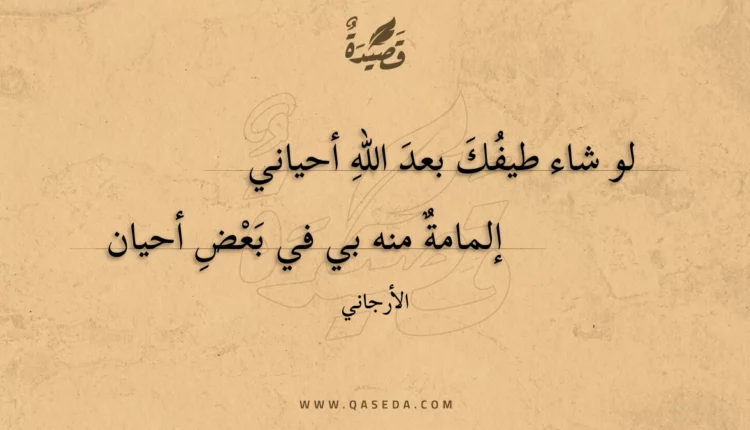 قَصِيْدَةٌ
لو شاء طيفُكَ بعدَ اللهِ أحياني
إلمامةٌ منه بي في بَعْضِ أحيان
الأرجاني
WWW.QASEDA.COM